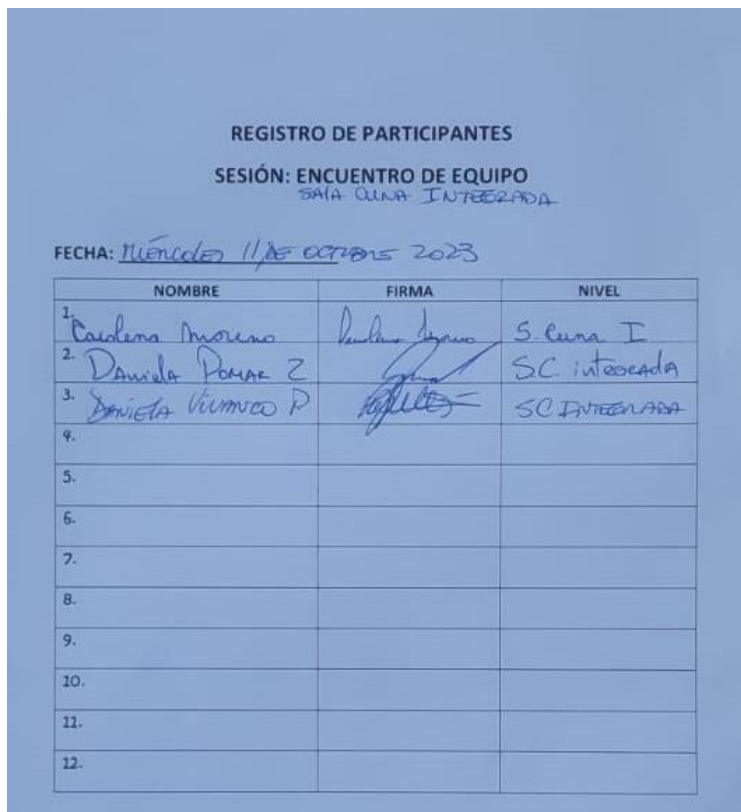 REGISTRO DE PARTICIPANTES
SESIÓN: ENCUENTRO DE EQUIPO
SALA CUNA INTEGRADA
FECHA: Miércoles 11 DE OCTUBRE 2023
NOMBRE FIRMA NIVEL
1. Carolena Moreno S. Cuna I
2. Daniela Pomar Z S.C. integrada
3. Daniela Vivanco P SC INTEGRADA
4.
5.
6.
7.
8.
9.
10.
11.
12.